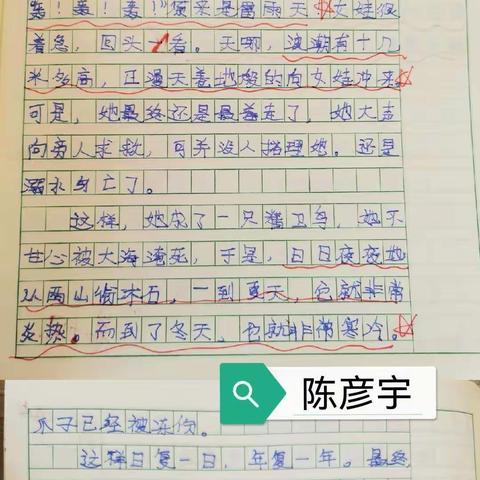 轰！轰！轰！"原来是雷雨天女娃很
着急，回头一看。天哪，浪潮有十几
米多高，正漫天盖地般的向女娃冲来
可是，她最终还是最着走了，她大声
向旁人求救，可并没人搭理她。还是
溺水身亡了。
这样，她成了一只精卫鸟，她不
甘心被大海淹死，于是，日日夜夜地
从西山偷木石，一到夏天，它就非常
炎热。而到了冬天，它就非常寒冷。
陈彦宇
爪子已经被冻伤。
这样日复一日，年复一年。最终